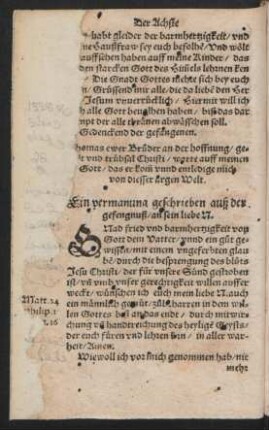 Der Achste
habt glider der barmhertzigkeit/ vnd
ne Haußfraw sey euch befolhē/ Vnd wölt
auffsehen haben auff meine Kinder/ das
den starcken Gott des Himels lehrnen ken
/ Die Gnadt Gottes mechte sich bey euch
/ Grüssend mir alle/ die da liebē den Her
Jesum vnuerrücklich/ Hiermit will ich
alle Gott beuolhen haben/ biß das dar
der alle thränen abwäschen soll.
Gedenckend der gefangenen.
homas ewer Brüder an der hoffnung/ ge-
vnd trübsal Christi/ warte auff meinen
Gott/ das er kom vnnd entledige mich
von diesser argen Welt.
Ein vermanung geschrieben auß der
gefengnuß/ an sein liebe N.
GNad frid vnd barmhertzigkeit von
Gott dem Vatter/ vnnd ein güt ge-
wissen/ mit einem vngeferbten glau
bē/ durch die besprengung des blüts
Jesu Christi/ der für vnsere Sünd gestorben
ist/ vn̄ vmb vnser gerechtigkeit willen aufferr
weckt/ wünschen ich euch mein liebe N. auch
ein männlich gemüt/ zül harren in den wil-
len Gottes biß an das ende/ durch mitwirc-
kung vn̄ handtreichung des heylige Geysts/
der euch füren vnd lehren / in aller war-
heit/ Amen.
Matt. 24
Philip. 1
2.16
Wiewoll ich vor mich genommen hab/ nit
mehr